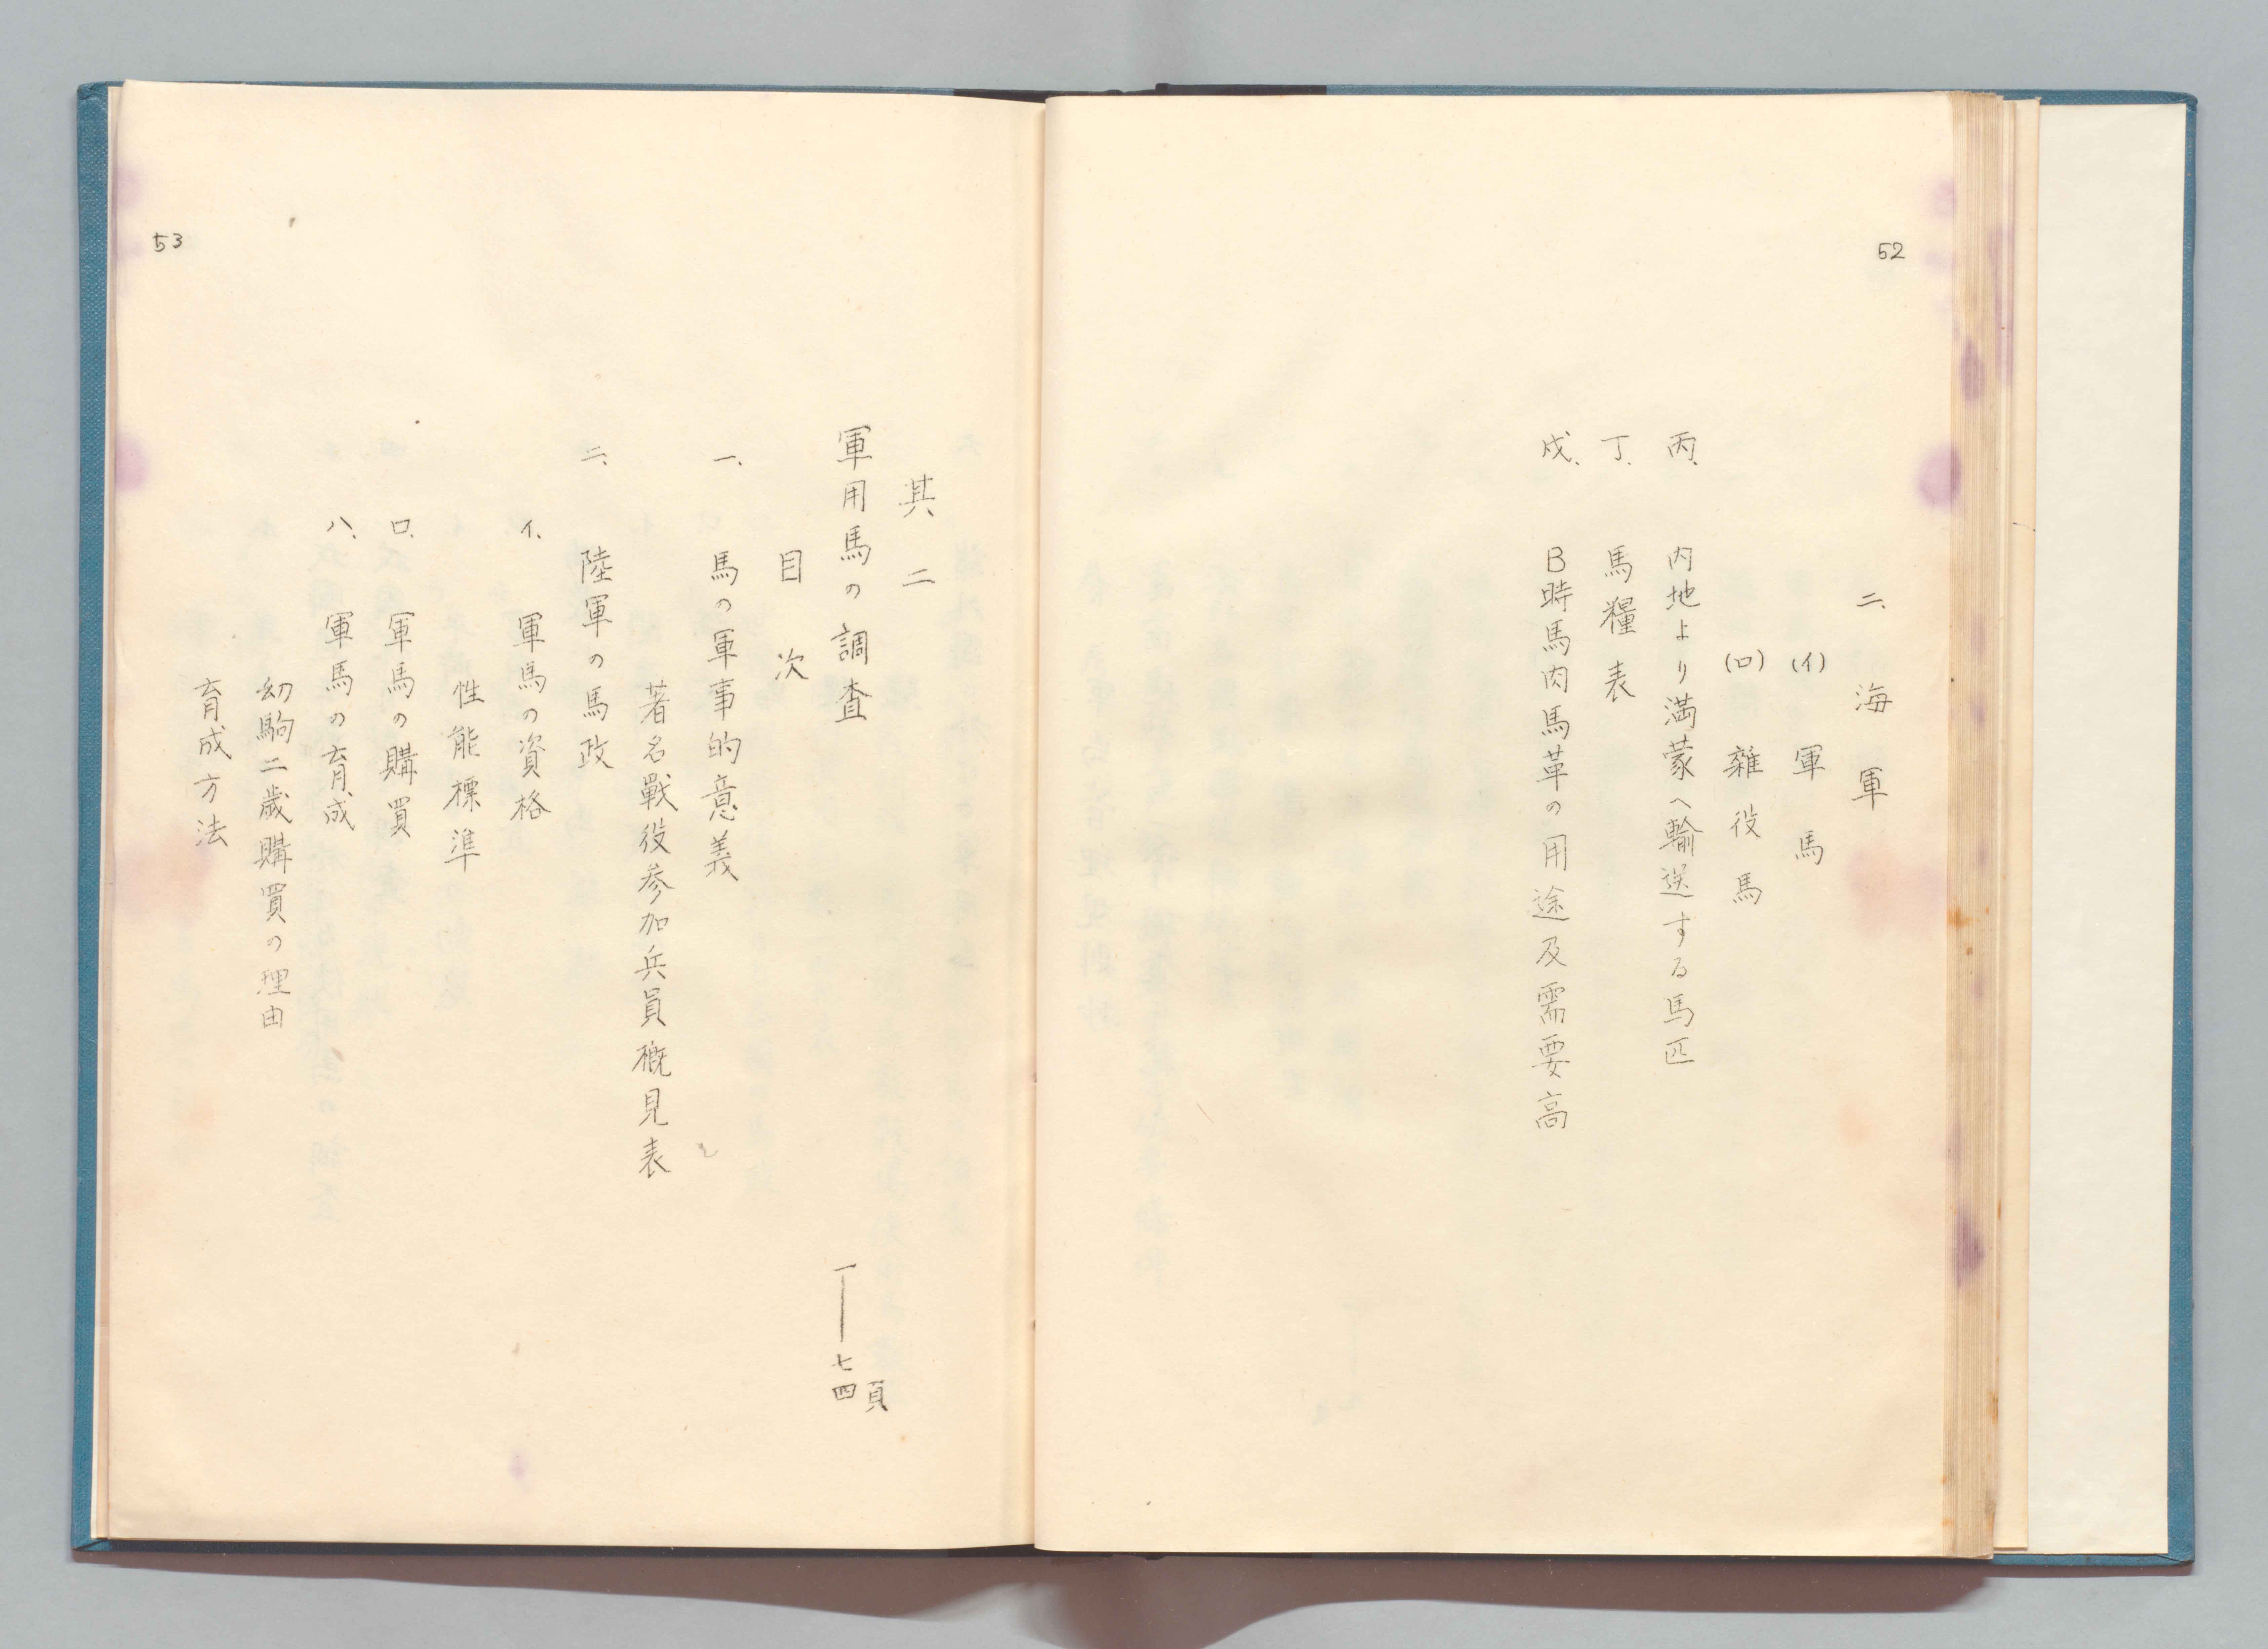 52
二、海軍
(イ) 軍馬
(ロ) 雜役馬
丙、内地より満蒙へ輸送する馬匹
丁、馬糧表
戊、B時馬肉馬革の用途及需要高
53
其二
軍用馬の調査 一―七四頁
目次
一、馬の軍事的意義
著名戰役参加兵員概見表
二、陸軍の馬政
イ、軍馬の資格
性能標準
ロ、軍馬の購買
ハ、軍馬の育成
幼駒二歳購買の理由
育成方法